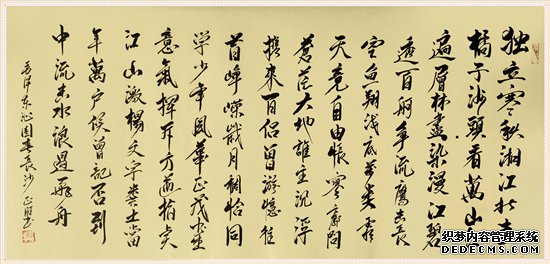 独立寒秋湘江北去
橘子洲头看萬山
遍層林盡染漫江碧
透百舸争流鹰击长
空鱼翔浅底萬类霜
天竞自由怅寥廓问
蒼茫大地誰主沉浮
携来百侣曾游憶往
昔峥嵘歲月稠恰同
学少年風華正茂書生
意氣揮斥方遒指点
江山激揚文字糞土當
年萬户侯曾記否到
中流击水浪遏飛舟
毛泽东沁园春長沙
织梦内容管理系统
DEDECMS.COM